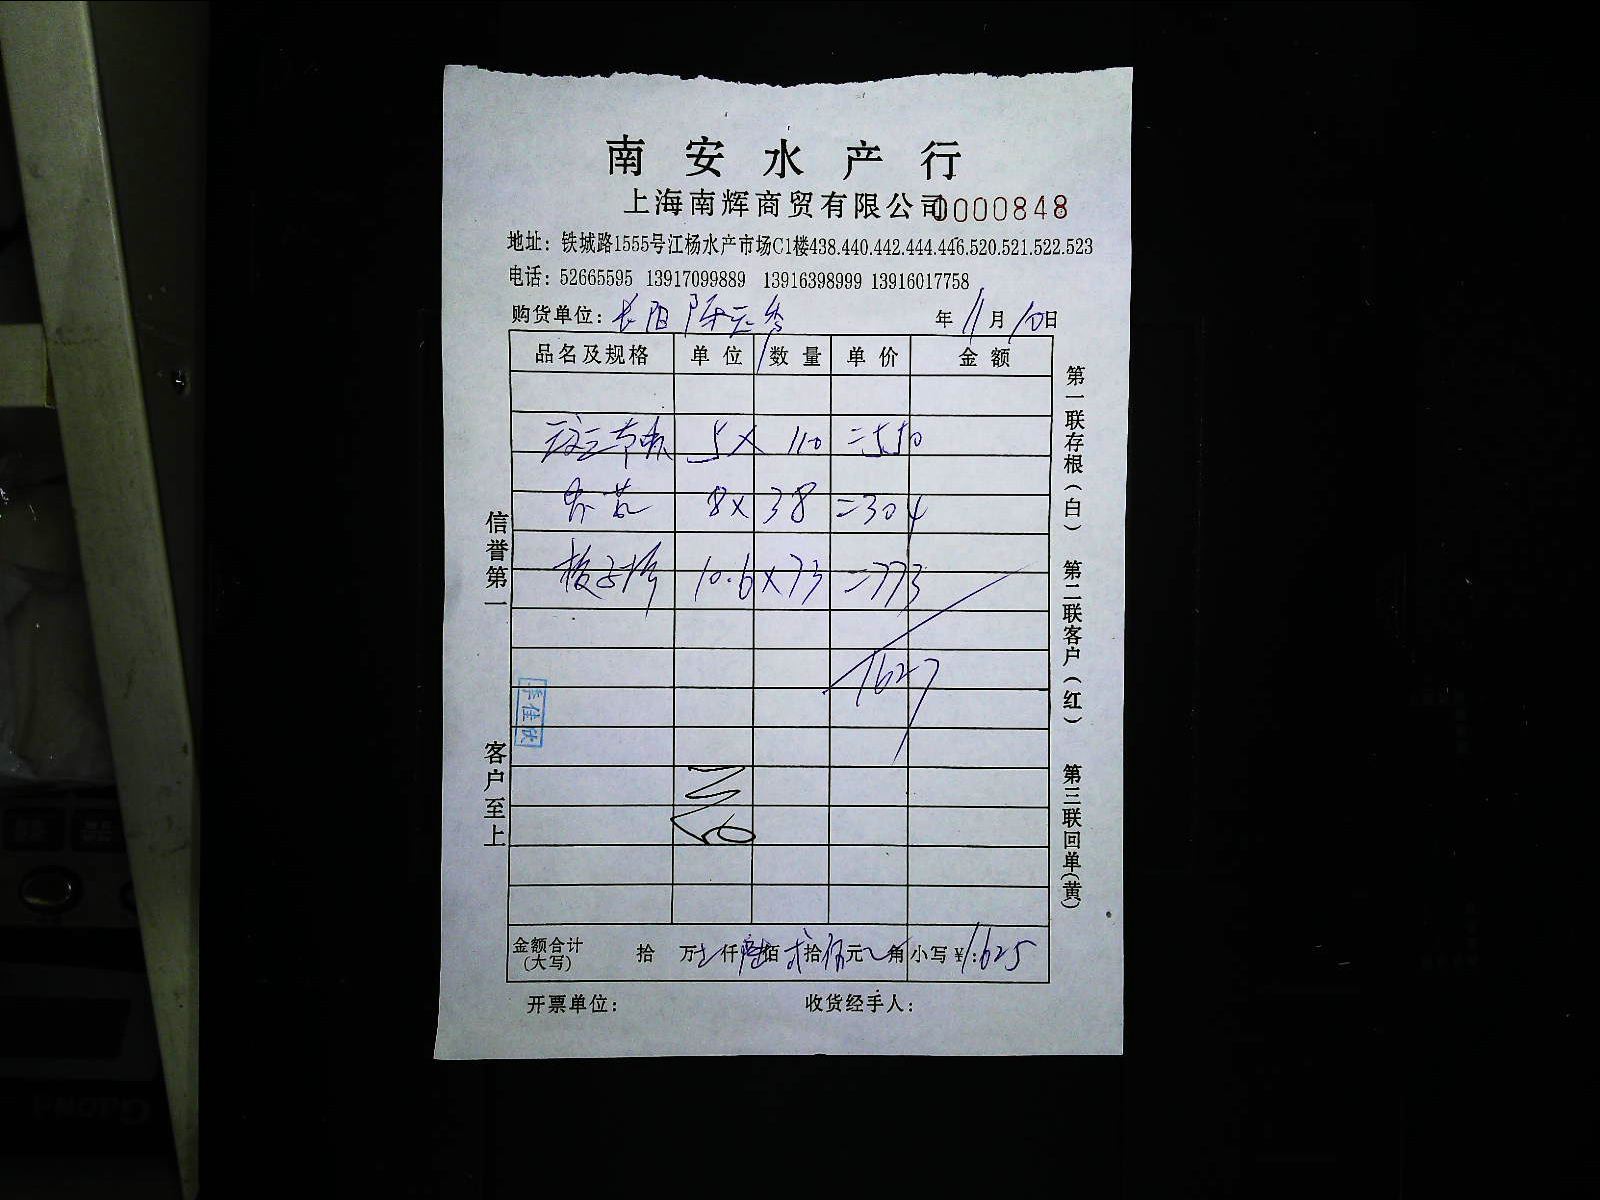 南安水产行
上海南辉商贸有限公司 0000848
地址：铁城路1555号江杨水产市场C1楼438.440.442.444.446.520.521.522.523
电话：52665595 13917099889 13916398999 13916017758
购货单位：长阳 年11月10日
品名及规格 单位 数量 单价 金额
5× 110 =550
8× 38 =304
10.6×73 =773
1627
金额合计(大写) 拾 万 仟 陆佰 拾伍元 角 小写￥:1625
开票单位： 收货经手人：
信誉第一 客户至上
第一联存根(白) 第二联客户(红) 第三联回单(黄)